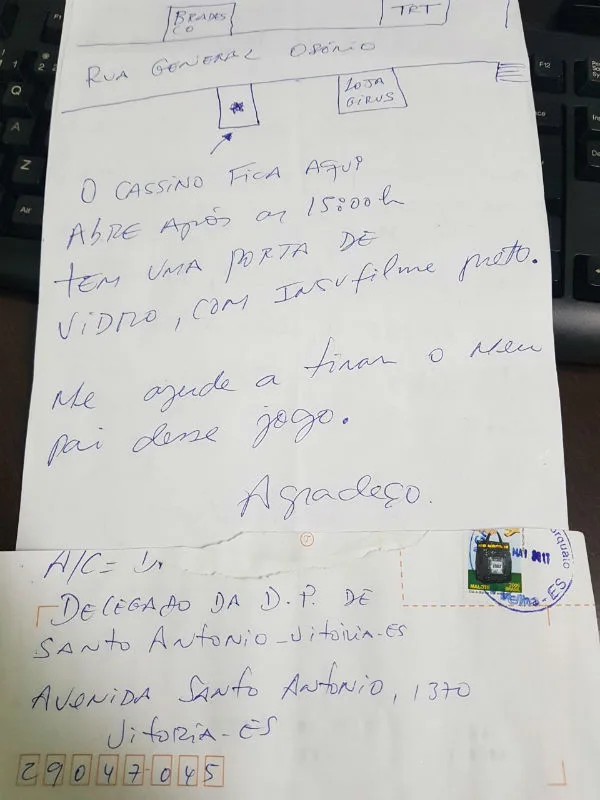 BRADES
CO
TRT
RUA GENERAL OSÓRIO
LOJA
GIRUS
O CASSINO FICA AQUI
ABRE APÓS as 15:00h
TEM UMA PORTA DE
VIDRO, COM INSUFILME preto.
Me ajude a tirar o meu
pai desse jogo.
Agradeço.
A/C=
DELEGADO DA D.P. DE
SANTO ANTONIO-VITÓRIA-ES
AVENIDA SANTO ANTONIO, 1370
VITORIA-ES
29047-045
MAI 2017
Velha-ES
Q
A
Z
Alt
F12